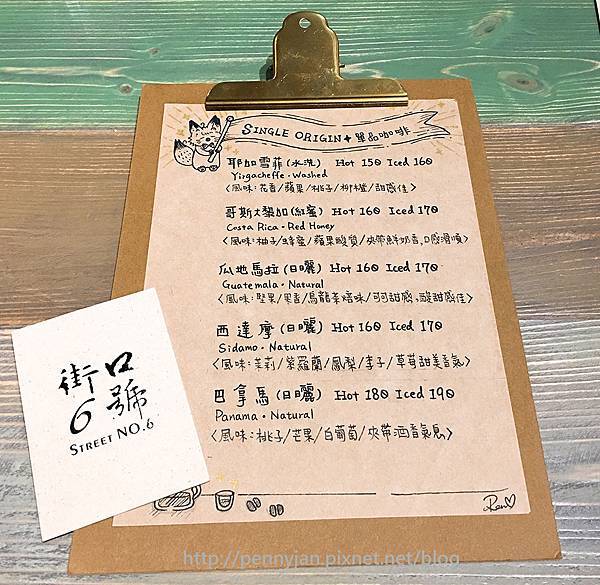 SINGLE ORIGIN 單品咖啡
耶加雪菲(水洗) Hot 150 Iced 160
Yirgacheffe・Washed
〈風味:花香/蘋果/桃子/柑橘/甜感佳〉
哥斯大黎加(紅蜜) Hot 160 Iced 170
Costa Rica・Red Honey
〈風味:柚子/蜂蜜/蘋果酸質/夾帶鮮奶香,口感滑順〉
瓜地馬拉(日曬) Hot 160 Iced 170
Guatemala・Natural
〈風味:堅果/果香/烏龍茶焙味/可可甜感、酸甜感佳〉
西達摩(日曬) Hot 160 Iced 170
Sidamo・Natural
〈風味:茉莉/紫羅蘭/鳳梨/李子/草莓甜美香氣〉
巴拿馬(日曬) Hot 180 Iced 190
Panama・Natural
〈風味:桃子/芒果/白葡萄/夾帶酒香氣息〉
街口
6號
STREET NO.6
http://pennyjan.pixnet.net/blog